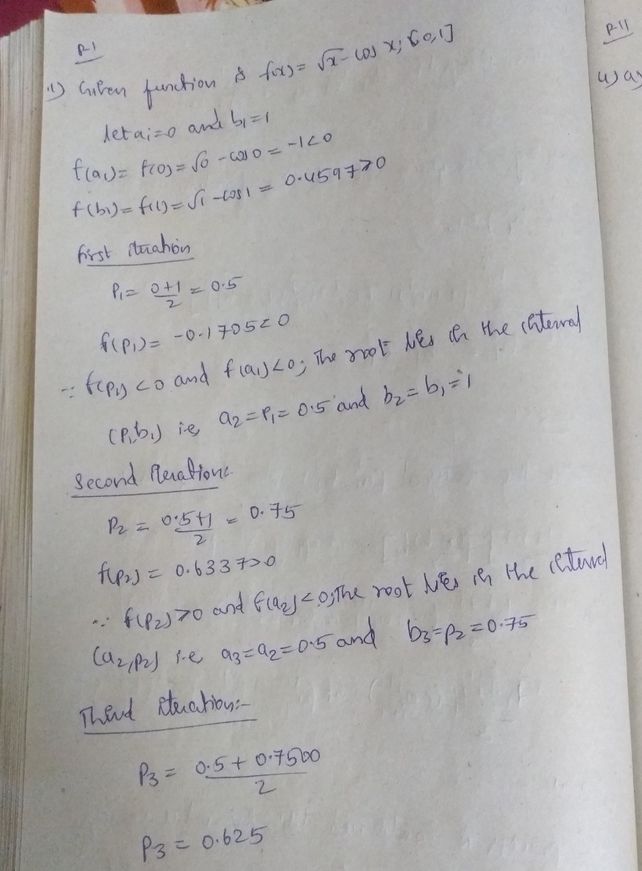 P-1
P-11
1) Given function is f(x) = √x - cos x; [0,1]
4) a)
let a₁=0 and b₁=1
f(a₁) = f(0) = √0 - cos 0 = -1<0
f(b₁) = f(1) = √1 - cos 1 = 0.4597>0
first itration
P₁ = (0+1)/2 = 0.5
f(P₁) = -0.1705<0
∵ f(P₁) <0 and f(a₁)<0; The root lies in the interval
(P₁,b₁) i.e, a₂=P₁=0.5 and b₂=b₁=1
Second Iteration:-
P₂ = (0.5+1)/2 = 0.75
f(P₂) = 0.6337>0
∵ f(P₂)>0 and f(a₂)<0; The root lies in the interval
(a₂,P₂) i.e, a₃=a₂=0.5 and b₃=P₂=0.75
Third iteration:-
P₃ = (0.5 + 0.7500)/2
P₃ = 0.625